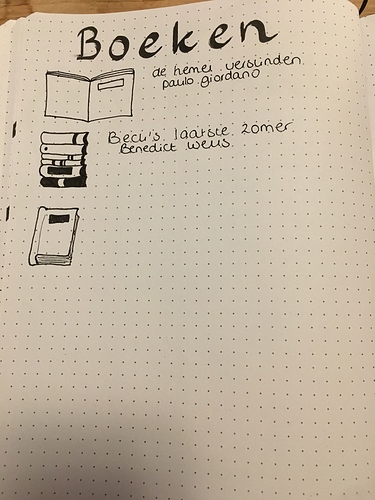 Boeken
de hemel verslinden
paulo giordano
Beck's laatste zomer
Benedict wells